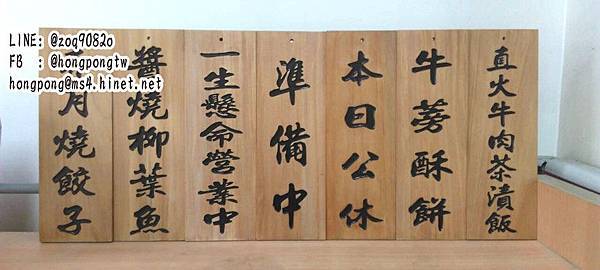 LINE: @zoq9082o
FB : @hongpongtw
hongpong@ms4.hinet.net
直火牛肉茶漬飯
牛蒡酥餅
本日公休
準備中
一生懸命營業中
醬燒柳葉魚
月燒餃子